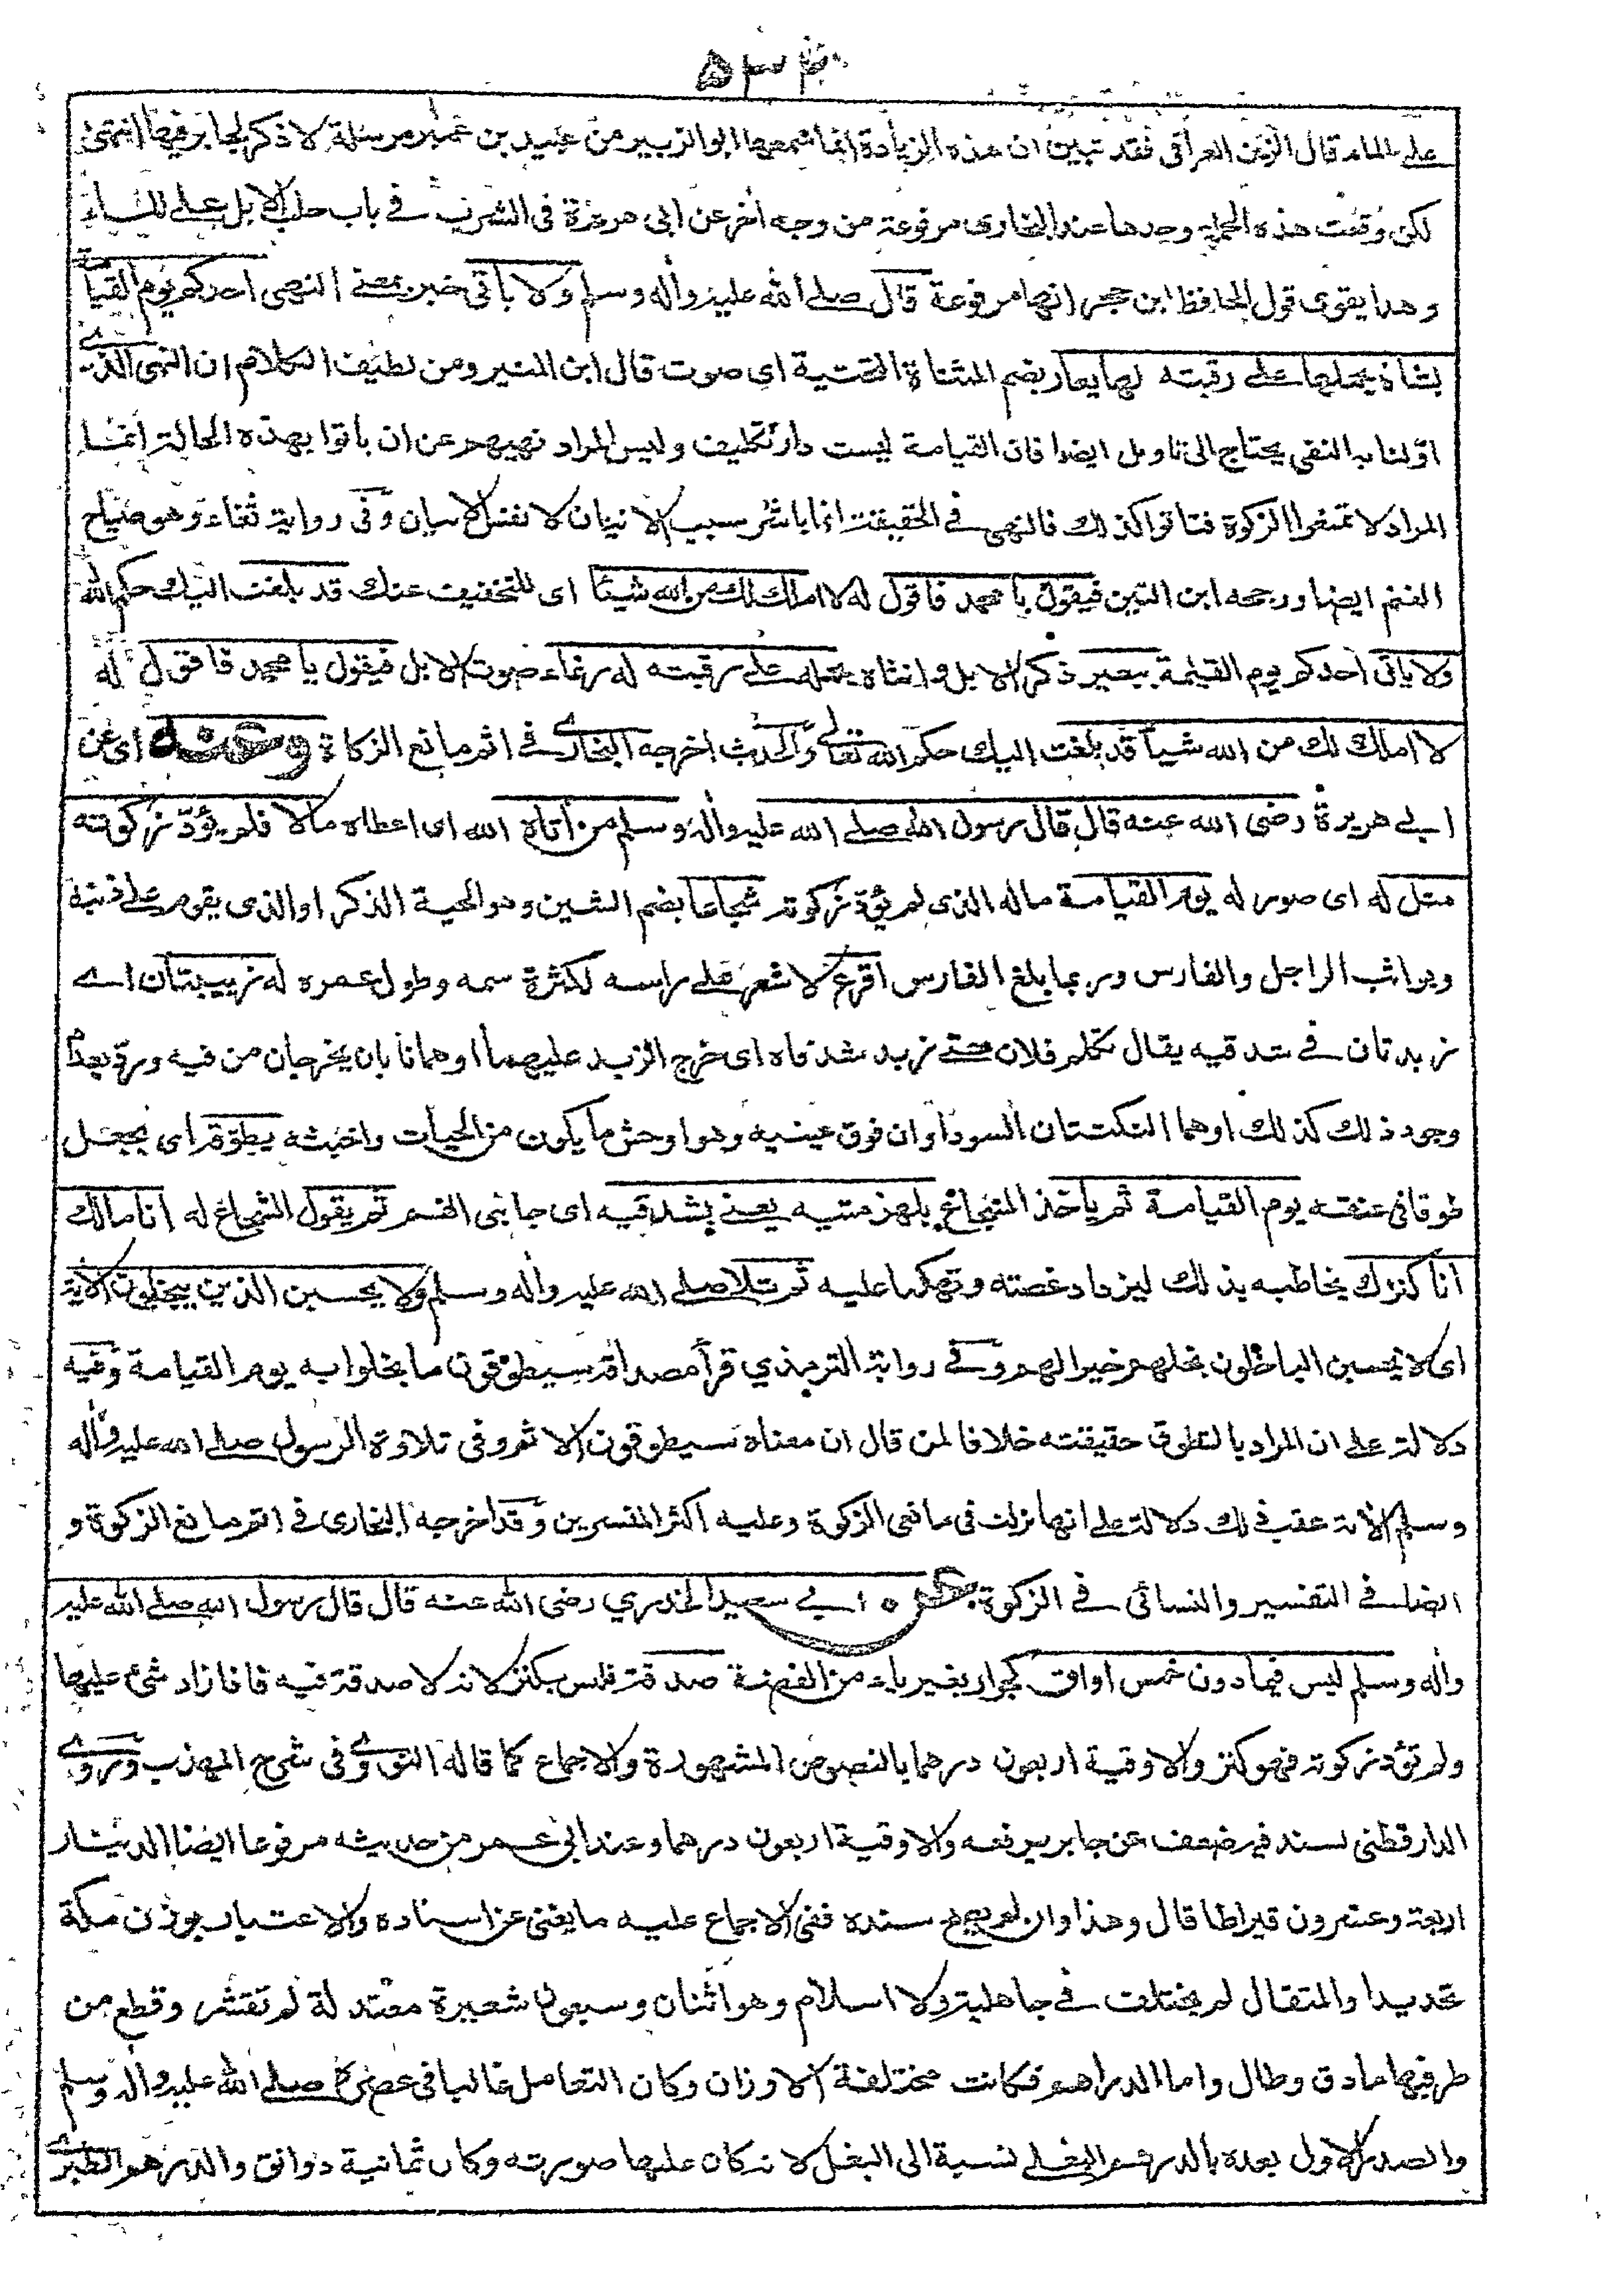 ٥٣
على الماء قال الزين العراقي فقد تبين ان هذه الزيادة انما سمعها ابو الزبير من عبيد بن عمير مرسلة لا ذكر لجابر فيها انتهى
لكن وقعت هذه الجملة وحدها عند البخاري مرفوعة من وجه اخر عن ابي هريرة في الشرب في باب حلب الابل على الماء
وهذا يقوى قول الحافظ ابن حجر انها مرفوعة قال صلى الله عليه واله وسلم ولا ياتي خبر بمعنى النهى احدكم يوم القيامة
بشاة يحملها على رقبته لها يعار بضم المثناة التحتية اى صوت قال ابن المنير ومن لطيف الكلام ان النهى الذى
اولنا به النفى يحتاج الى تاويل ايضا فان القيامة ليست دار تكليف وليس المراد نهيهم عن ان ياتوا بهذه الحالة انما
المراد لا تمنعوا الزكوة فتاتوا كذلك فالنهى في الحقيقة انما باشر سبب الاتيان لا نفس الاتيان وفى رواية ثغاء وهو صياح
الغنم ايضا ورجحه ابن التين فيقول يا محمد فاقول له لا املك لك من الله شيئا اى للتخفيف عنك قد بلغت اليك حكم الله
ولا ياتى احدكم يوم القيمة ببعير ذكر الابل وانثاه يحمله على رقبته له رغاء صوت الابل فيقول يا محمد فاقول له
لا املك لك من الله شيأ قد بلغت اليك حكم الله تعالى والحديث اخرجه البخارى في اثم مانع الزكاة وعنه اى عن
ابى هريرة رضى الله عنه قال قال رسول الله صلى الله عليه واله وسلم من اتاه الله اى اعطاه مالا فلم يؤد زكوته
مثل له اى صور له يوم القيامة ماله الذى لم يؤد زكوته شجاعا بضم الشين وهو الحية الذكر او الذى يقوم على ذنبه
ويواثب الراجل والفارس وربما بلغ الفارس اقرع لا شعر على راسه لكثرة سمه وطول عمره له زبيبتان اى
زبدتان في شدقيه يقال تكلم فلان حتى زبد شدقاه اى خرج الزبد عليهما او هما نابان يخرجان من فيه ورد بعدم
وجود ذلك كذلك او هما النكتتان السوداوان فوق عينيه وهو اوحش ما يكون من الحيات واخبثه يطوقه اى يجعل
طوقا في عنقه يوم القيامة ثم ياخذ الشجاع بلهزمتيه يعنى بشدقيه اى جانبى الفم ثم يقول الشجاع له انا مالك
انا كنزك يخاطبه بذلك ليزداد غصته وتهكما عليه ثم تلا صلى الله عليه واله وسلم ولا يحسبن الذين يبخلون الاية
اى لا يحسبن الباخلون بخلهم خيرا لهم وفى رواية الترمذي قرأ مصداقه سيطوقون ما بخلوا به يوم القيامة وفيه
دلالة على ان المراد بالتطوق حقيقته خلافا لمن قال ان معناه سيطوقون الاثم وفى تلاوة الرسول صلى الله عليه واله
وسلم الاية عقب ذلك دلالة على انها نزلت في مانعى الزكوة وعليه اكثر المفسرين وقد اخرجه البخارى في اثم مانع الزكوة و
ايضا في التفسير والنسائى في الزكوة ٥ ابى سعيد الخدري رضى الله عنه قال قال رسول الله صلى الله عليه
واله وسلم ليس فيما دون خمس اواق كجوار بغير ياء من الفضة صدقة فليس بكنز لانه لا صدقة فيه فاذا زاد شئ عليها
ولم تؤد زكوته فهو كنز والاوقية اربعون درهما بالنصوص المشهورة والاجماع كما قاله النووى في شرح المهذب وروى
الدارقطنى بسند فيه ضعف عن جابر يرفعه والاوقية اربعون درهما وعند ابى عمر من حديثه مرفوعا ايضا الدينار
اربعة وعشرون قيراطا قال وهذا وان لم يصح سنده ففى الاجماع عليه ما يغنى عن اسناده والاعتبار بوزن مكة
تحديدا والمثقال لم يختلف في جاهلية ولا اسلام وهو اثنان وسبعون شعيرة معتدلة لم تقشر وقطع من
طرفيها ما دق وطال واما الدراهم فكانت مختلفة الاوزان وكان التعامل غالبا في عصره صلى الله عليه واله وسلم
والصدر الاول بعده بالدرهم البغلى نسبة الى البغل لانه كان عليها صورته وكان ثمانية دوانق والدرهم الطبرى